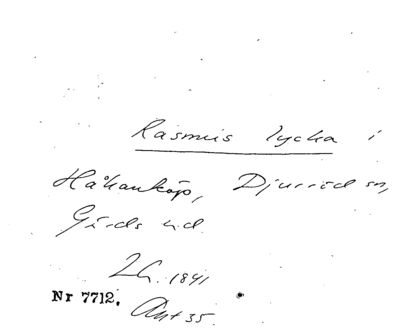 Rasmus Lycka i
Håkanköp, Djurröd sn,
Gärds hd.
1841
Nr 7712.